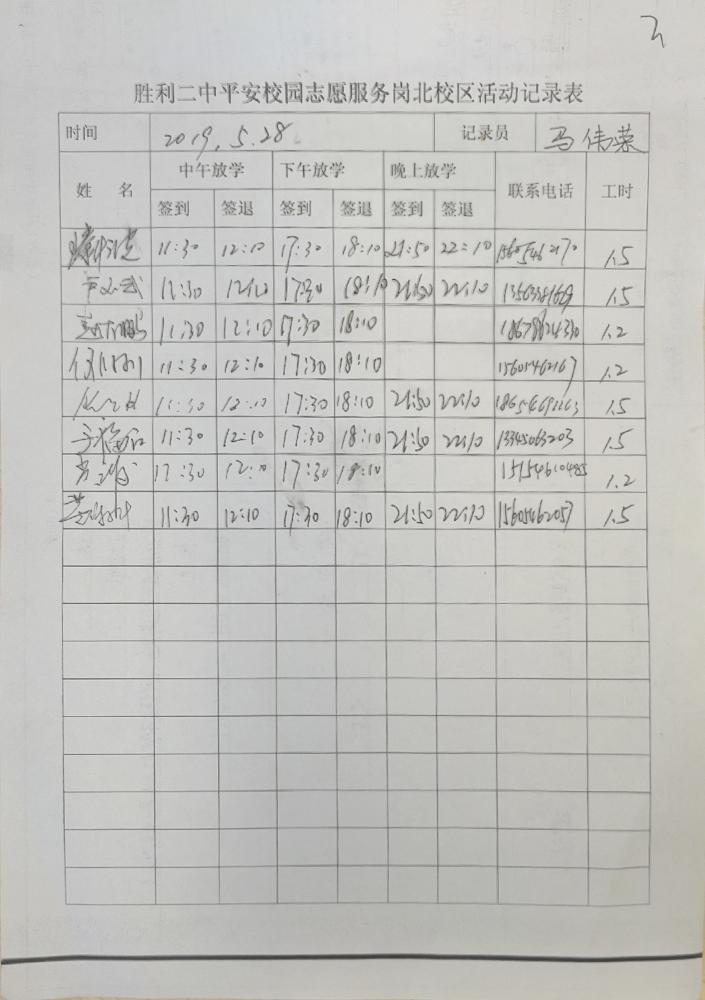 胜利二中平安校园志愿服务岗北校区活动记录表
时间 2019.5.28 记录员 马伟荣
姓 名 中午放学 下午放学 晚上放学 联系电话 工时
签到 签退 签到 签退 签到 签退
11:30 12:10 17:30 18:10 21:50 22:10 15605462170 1.5
11:30 12:10 17:30 18:10 21:50 22:10 1.5
11:30 12:10 17:30 18:10 1.2
11:30 12:10 17:30 18:10 15605462167 1.2
11:30 12:10 17:30 18:10 21:50 22:10 1.5
11:30 12:10 17:30 18:10 21:50 22:10 13345063203 1.5
17:30 12:10 17:30 18:10 15154610485 1.2
11:30 12:10 17:30 18:10 21:50 22:10 15605462057 1.5